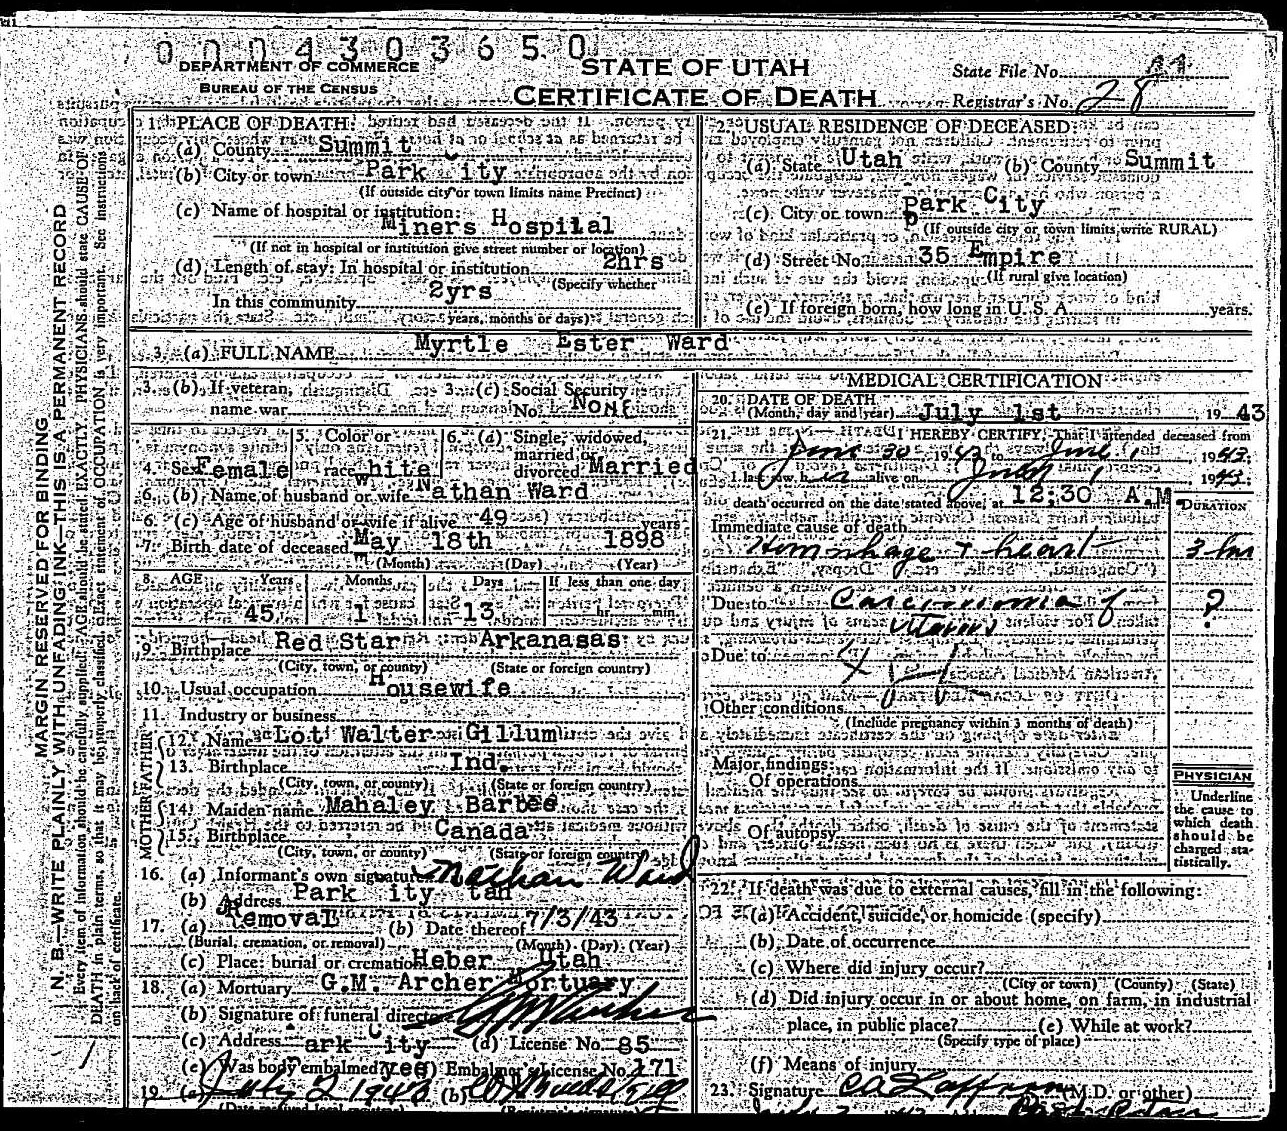 0004303650
DEPARTMENT OF COMMERCE
BUREAU OF THE CENSUS
STATE OF UTAH
CERTIFICATE OF DEATH
State File No.
Registrar's No. 28
MARGIN RESERVED FOR BINDING
N. B.—WRITE PLAINLY WITH UNFADING INK—THIS IS A PERMANENT RECORD
Every item of information should be carefully supplied. AGE should be stated EXACTLY. PHYSICIANS should state CAUSE OF
DEATH in plain terms, so that it may be properly classified. Exact statement of OCCUPATION is very important. See Instructions
on back of certificate.
1. PLACE OF DEATH:
(a) County Summit
(b) City or town Park City
(If outside city or town limits name Precinct)
(c) Name of hospital or institution:
Miners Hospilal
(If not in hospital or institution give street number or location)
(d) Length of stay: In hospital or institution 2hrs
(Specify whether
In this community 2yrs
years, months or days)
2. USUAL RESIDENCE OF DECEASED:
(a) State Utah (b) County Summit
(c) City or town Park City
(If outside city or town limits, write RURAL)
(d) Street No. 35 Empire
(If rural give location)
(e) If foreign born, how long in U. S. A. years.
3. (a) FULL NAME Myrtle Ester Ward
3. (b) If veteran, name war
3. (c) Social Security No. None
4. Sex Female
5. Color or race white
6. (a) Single, widowed, married or divorced Married
6. (b) Name of husband or wife Nathan Ward
6. (c) Age of husband or wife if alive 49 years
7. Birth date of deceased May 18th 1898
(Month) (Day) (Year)
8. AGE Years Months Days If less than one day
45 1 13 hr. min.
9. Birthplace Red Star Arkanasas
(City, town, or county) (State or foreign country)
10. Usual occupation Housewife
11. Industry or business
FATHER
12. Name Lot Walter Gillum
13. Birthplace Ind.
(City, town, or county) (State or foreign country)
MOTHER
14. Maiden name Mahaley Bartee
15. Birthplace Canada
(City, town, or county) (State or foreign country)
16. (a) Informant's own signature Nathan Ward
(b) Address Park ity tah
17. (a) Removal (b) Date thereof 7/3/43
(Burial, cremation, or removal) (Month) (Day) (Year)
(c) Place: burial or cremation Heber Utah
18. (a) Mortuary G.M. Archer Mortuary
(b) Signature of funeral director
(c) Address Park City (d) License No. 85
(e) Was body embalmed? yes Embalmer's License No. 171
19. (a) July 2 1943 (b)
MEDICAL CERTIFICATION
20. DATE OF DEATH
(Month, day and year) July 1st, 1943
21. I HEREBY CERTIFY, That I attended deceased from
June 30 1943 to June 1, 1943;
I last saw her alive on July 1 1943;
death occurred on the date stated above, at 12:30 A.M.
DURATION
Immediate cause of death
Hemorrhage & heart 3 hrs
Due to Carcinoma of ?
uterus
Due to
Other conditions
(Include pregnancy within 3 months of death)
Major findings:
Of operations
Of autopsy
PHYSICIAN
Underline
the cause to
which death
should be
charged sta-
tistically.
22. If death was due to external causes, fill in the following:
(a) Accident, suicide, or homicide (specify)
(b) Date of occurrence
(c) Where did injury occur?
(City or town) (County) (State)
(d) Did injury occur in or about home, on farm, in industrial
place, in public place? (e) While at work?
(Specify type of place)
(f) Means of injury
23. Signature (M.D. or other)